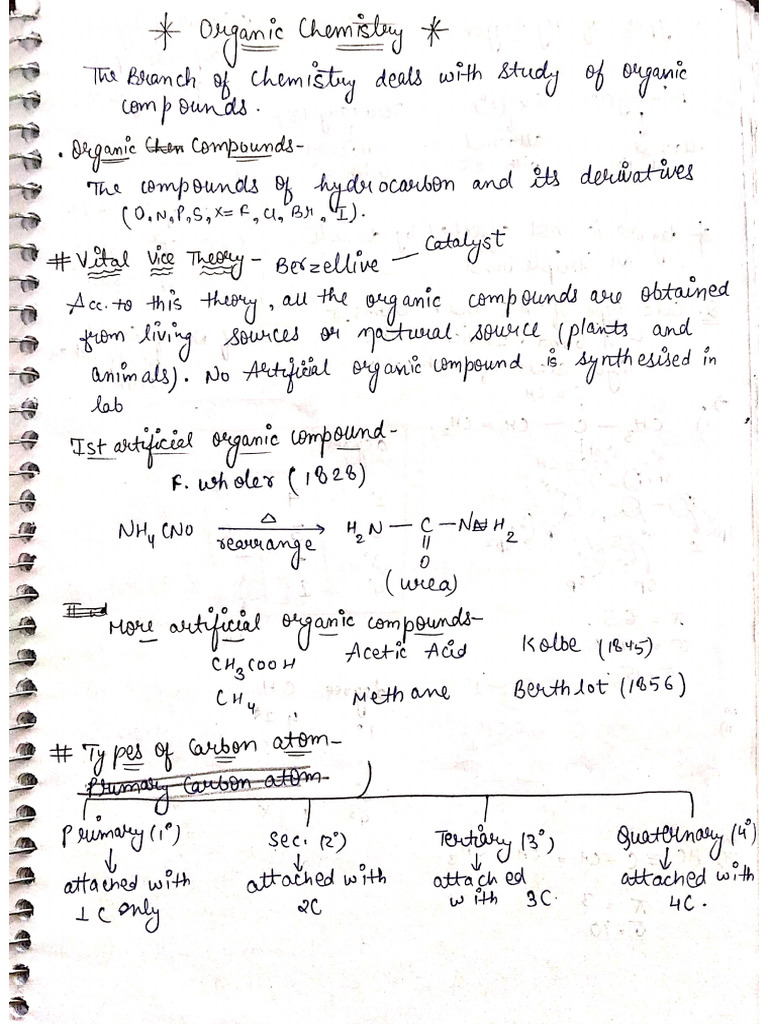 * Organic Chemistry *
The Branch of chemistry deals with study of organic
compounds.
. Organic Chem Compounds-
The compounds of hydrocarbon and its derivatives
(O, N, P, S, X= F, Cl, Br, I).
# Vital Vice Theory - Berzellive — Catalyst
Acc. to this theory, all the organic compounds are obtained
from living sources or natural source (plants and
animals). No Artificial organic compound is synthesised in
lab
Ist artificial organic compound-
F. wholer (1828)
NH4CNO →Δ rearrange H2N — C — NH2
||
O
(urea)
More artificial organic compounds-
CH3COOH Acetic Acid Kolbe (1845)
CH4 Methane Berthlot (1856)
# Types of Carbon atom-
Primary Carbon atom-
Primary (1°) Sec. (2°) Tertiary (3°) Quaternary (4°)
↓ ↓ ↓ ↓
attached with attached with attached attached with
1 C only 2C with 3C. 4C.